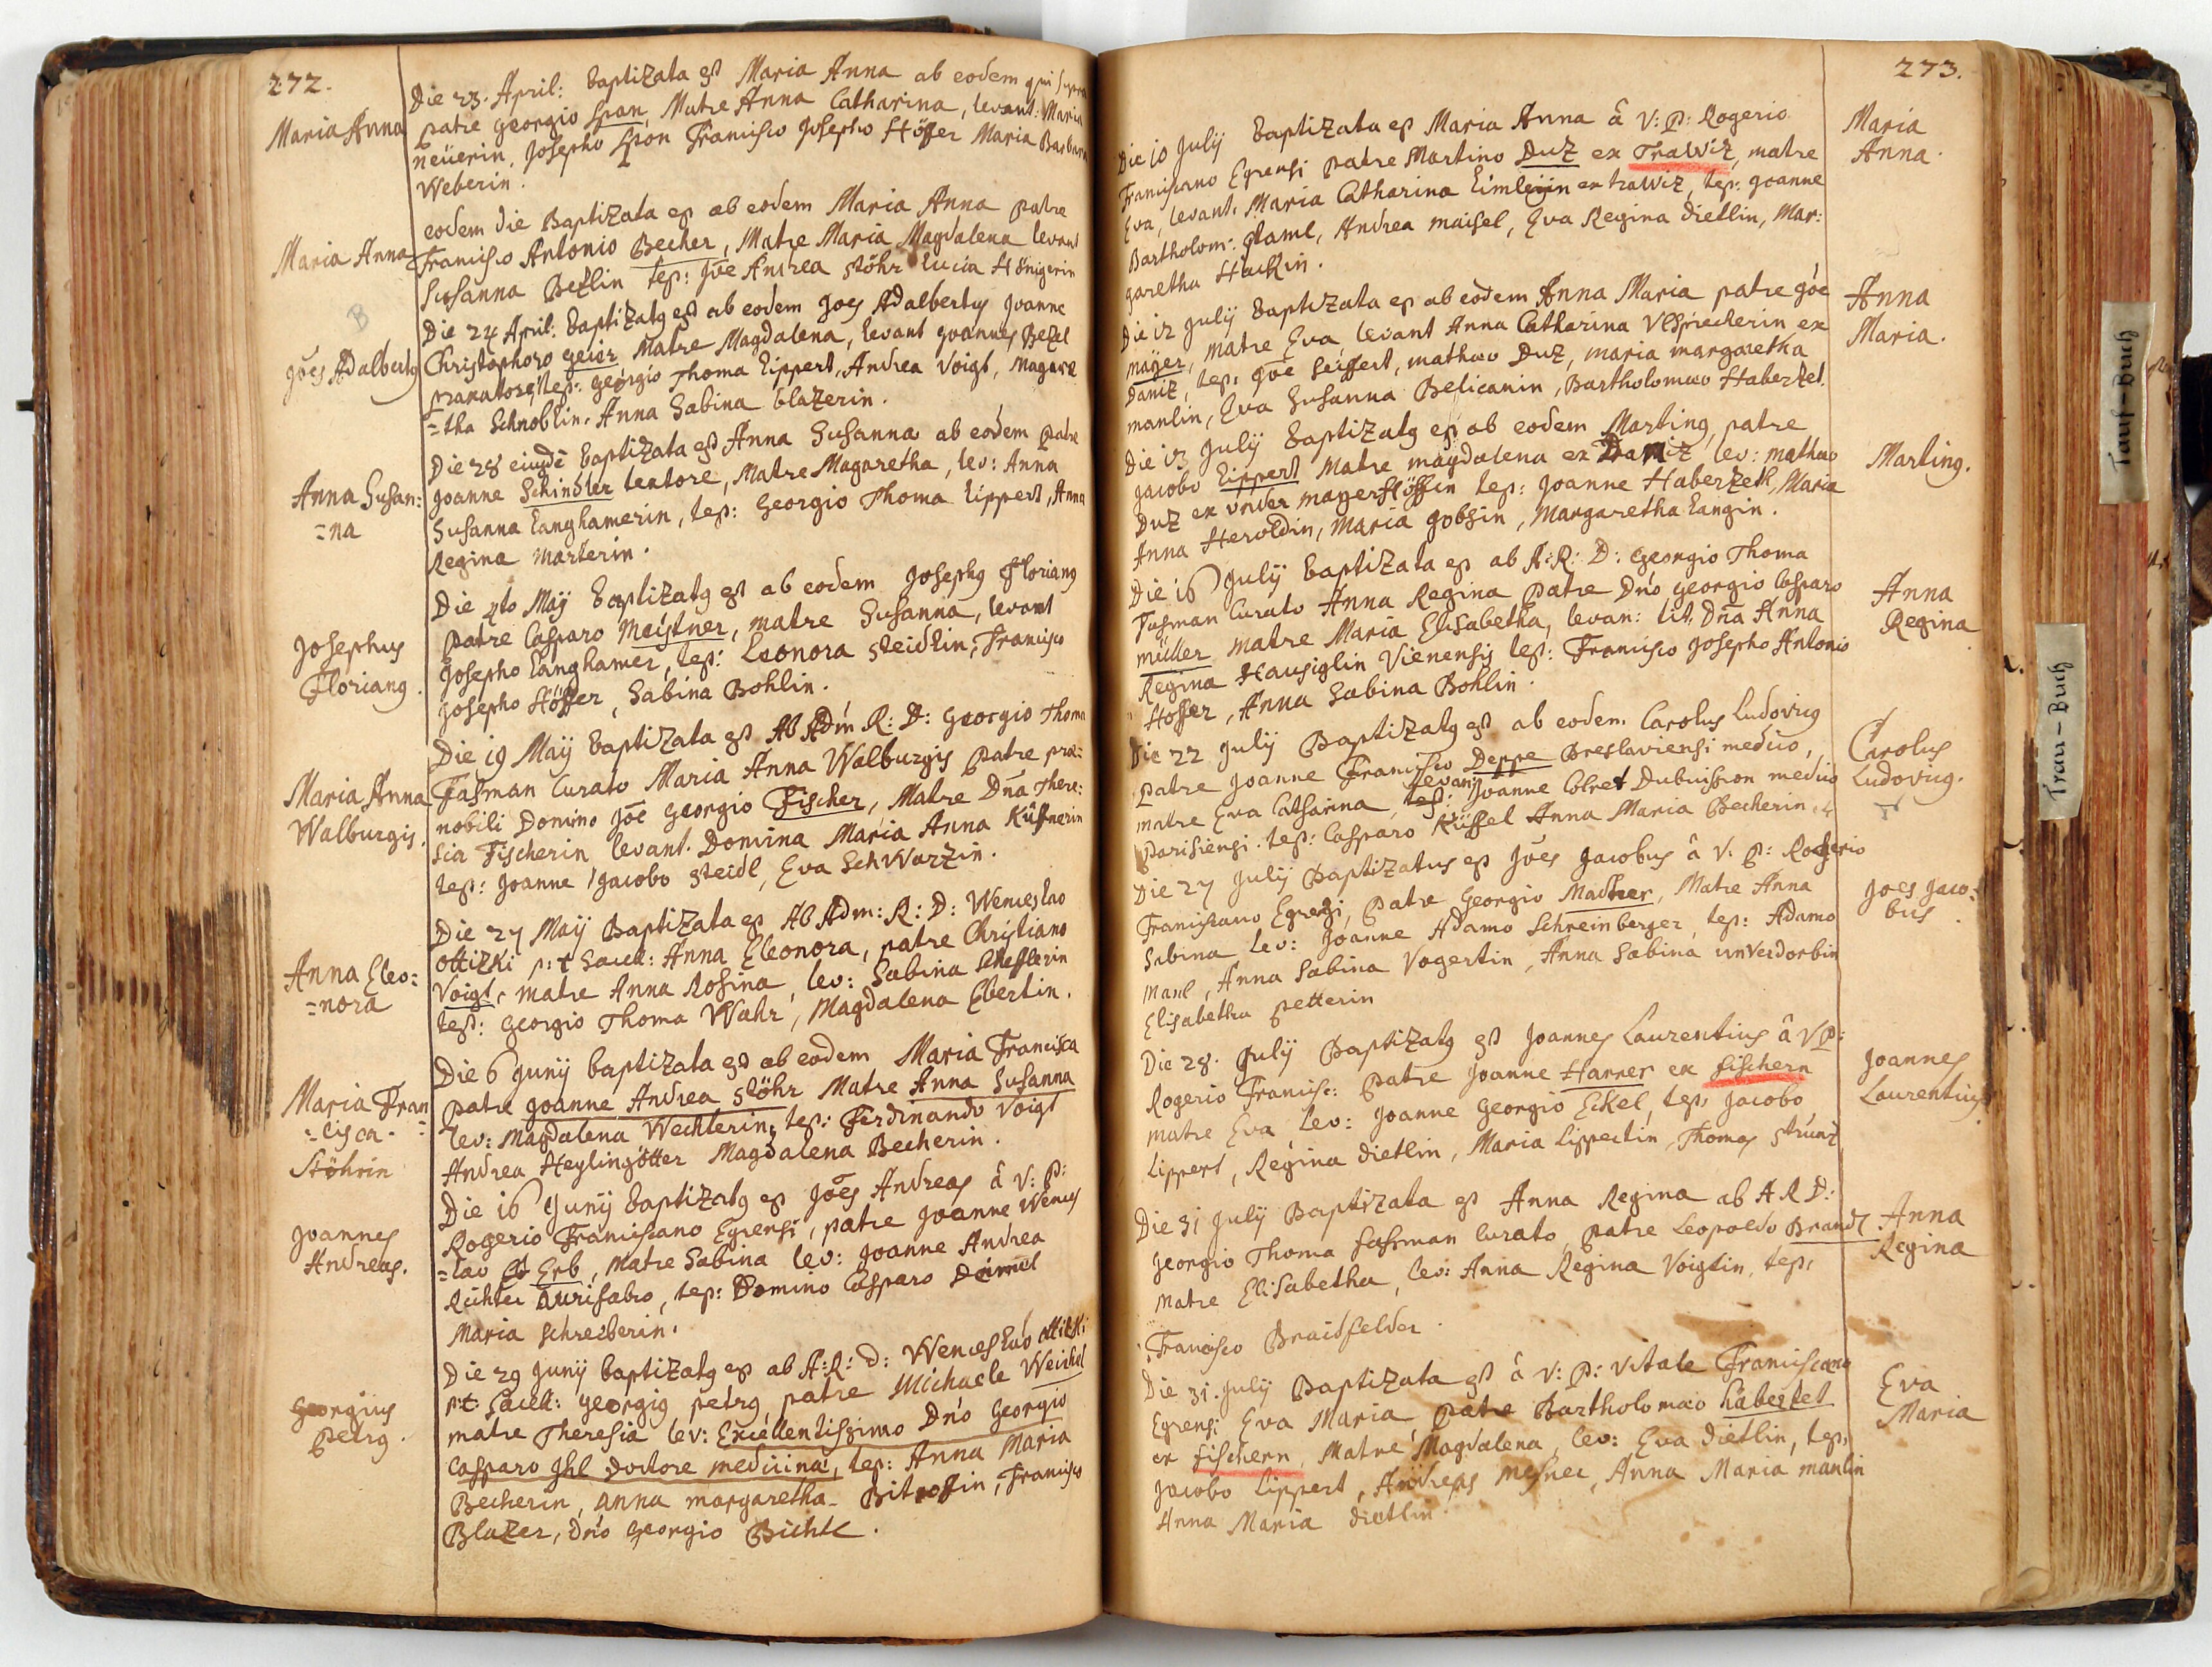 272.
Maria Anna
Die 23. April: baptizata est Maria Anna ab eodem qui supra
patre georgio Span, Matre Anna Catharina, levant: Maria
neüerin, Josepho Span Francisco Josepho Höffer Maria Barbara
Weberin.
Maria Anna
eodem die Baptizata est ab eodem Maria Anna patre
Francisco Antonio Becher, Matre Maria Magdalena levant
Susanna Bezlin test: Jōe Andrea Stöhr Lucia Hönigerin
B
Jōes Adalbertus
Die 24 April: baptizatus est ab eodem Joes Adalbertus Joanne
Christophoro geier Matre Magdalena, levant Joannes Bezel
test: georgio Thoma Lippert, Andrea Voigt, Magare
=tha Schnoblin. Anna Sabina blazerin.
Anna Susan:
=na
Die 28 eiusdē baptizata est Anna Susanna ab eodem patre
Joanne Schindler textore, Matre Magaretha, lev: Anna
Susanna Langhamerin, test: Georgio Thoma Lippert, Anna
Regina marterin.
Josephus
Florianus.
Die 4to Maÿ baptizatus est ab eodem Josephus Florianus
patre Casparo Meistner, matre Susanna, levant
Josepho Langhamer, test: Leonora Steidlin, Francisco
Josepho Höffer, Sabina Bohlin.
Maria Anna
Walburgis.
Die 19 Maÿ baptizata est Ab Adm R: D: Georgio Thoma
Fasman Curato Maria Anna Walburgis patre præ=
nobili Domino Jōe Georgio Fischer, Matre Dña There:
sia Fischerin levant. Domina Maria Anna Küffnerin
test: Joanne Jacobo Steidl, Eva Schwarzin.
Anna Eleo:
=nora
Die 27 Maÿ Baptizata est Ab Adm: R: D: Wenceslao
Ottizki p:t Sacell: Anna Eleonora, patre Christiano
Voigt, matre Anna Rosina, lev: Sabina Schefflerin
test: Georgio Thoma Wahr, Magdalena Ebertin.
Maria Fran
=cisca.
Stöhrin
Die 6 Junÿ baptizata est ab eodem Maria Francisca
patre Joanne Andrea Stöhr Matre Anna Susanna
lev: Magdalena Wechterin, test: Ferdinando Voigt
Andrea Heylingötter Magdalena Becherin.
Joannes
Andreas.
Die 16 Junÿ baptizatus est Jōes Andreas â V: P:
Rogerio Franciscano Egrensi, patre Joanne Wences
=lao Erb, Matre Sabina lev: Joanne Andrea
Richter aurifabro, test: Domino Casparo
Maria Schreiberin.
Georgius
Petrus.
Die 29 Junÿ baptizatus est ab A:R: D: Wenceslao Ottizki
p:t: Sacell: georgius petrus, patre Michaele Weichel
matre Theresia lev: Excellentissimo Dn̄o Georgio
Casparo Ihl Doctore medicinæ, test: Anna Maria
Becherin, anna margaretha Francisco
Blazer, Dn̄o Georgio Bichtl.
273.
Maria
Anna.
Die 10 Julÿ baptizata est Maria Anna â V: P: Rogerio
Franciscano Egrensi patre Martino Duz ex Trawiz, matre
Eva, levant. Maria Catharina ex trawiz, test: Joanne
Bartholom: Andrea maisel, Eva Regina dietlin, Mar:
garetha Hackin.
Anna
Maria.
Die 12 Julÿ baptizata est ab eodem Anna Maria patre Jōe
mayer, matre Eva levant Anna Catharina ex
Damiz, test: Jōe Seiffert, mathæo Duz, maria margaretha
manlin, Eva Susanna Belicanin, Bartholomæo Haberzet.
Martinus.
Die 13 Julÿ baptizatus est ab eodem Martinus, patre
Jacobo Lippert Matre magdalena ex Damiz lev: mathæo
Duz ex under mayerhöffen test: Joanne Haberzetl, Maria
Anna Heroldin, maria gobsin, Margaretha Langin.
Anna
Regina
Die 16 Julÿ baptizata est ab A:R: D: Georgio Thoma
Fasman Curato Anna Regina patre Dn̄o georgio Casparo
müller matre Maria Elisabetha, levan: tit. Dn̄a Anna
Regina Hausiglin Vienensis test: Francisco Josepho Antonio
Hoffer, Anna Sabina Bohlin.
Carolus
Ludovicus.
Die 22 Julÿ Baptizatus est ab eodem Carolus Ludovicus
patre Joanne Francisco Deppe Breslaviensi medico,
matre Eva Catharina, levant Joanne Colret Dubuisson medico
Parisiensi. test: Casparo Küffel Anna Maria Becherin.
Joes Jaco=
bus.
Die 27 Julÿ Baptizatus est Jōes Jacobus â V. P: Rogerio
Franciscano Egrensi, patre Georgio Madtner, Matre Anna
Sabina lev: Joanne Adamo Schreinberger, test: Adamo
manl, Anna Sabina Vogertin, Anna Sabina unverdorbin
Elisabetha petterin
Joannes
Laurentius
Die 28. Julÿ Baptizatus est Joannes Laurentius â V P:
Rogerio Francisc: patre Joanne Harrer ex fischern
matre Eva lev: Joanne Georgio Eckel, test: Jacobo
Lippert, Regina dietlin, Maria Lippertin, Thomas strunz
Anna
Regina
Die 31 Julÿ Baptizata est Anna Regina ab A R D:
Georgio Thoma fasman Curato, patre Leopoldo Brandl
matre Elisabetha, lev: Anna Regina Voigtin, test:
Francisco Braidfelder.
Eva
Maria
Die 31. Julÿ Baptizata est â V: P: Vitale Franciscano
Egrensi Eva Maria, patre Bartholomæo haberzet
ex fischern, Matre Magdalena, lev: Eva dietlin, test:
Jacobo Lippert, Andreas Mesner, Anna Maria manlin
Anna Maria dietlin
Tauf-Buch
Trau-Buch